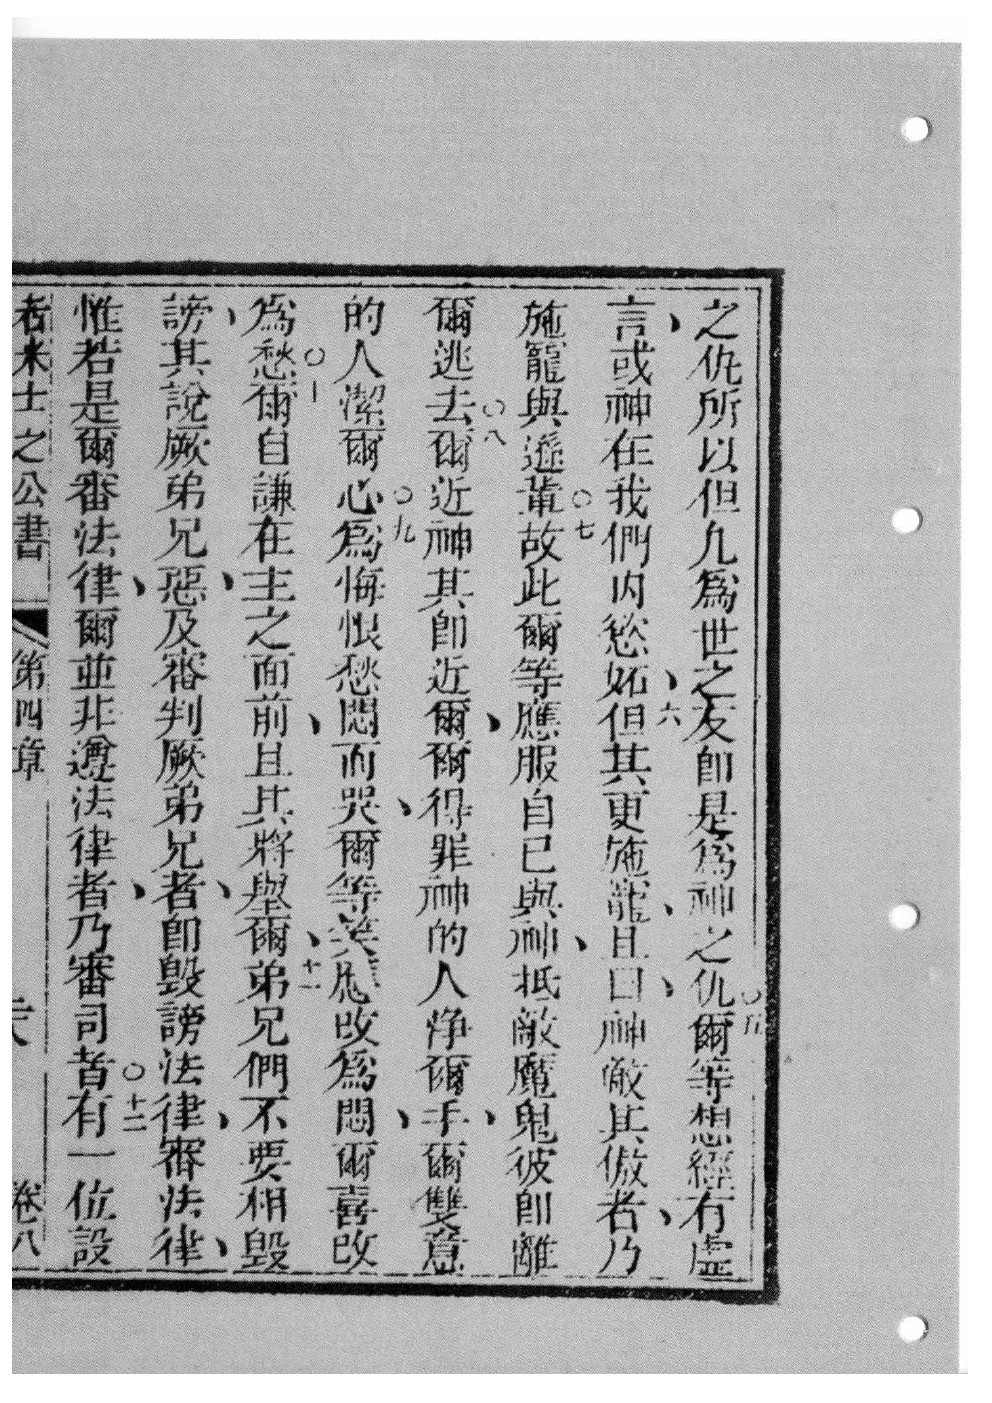 之仇所以但凢為世之友卽是為神之仇○五爾等想經有虛
言、或神在我們內慾妬、六但其更施寵、且曰、神敵其傲者、乃
施寵與遜輩○七故此爾等應服自已與神、抵敵魔鬼彼卽離
爾逃去○八爾近神其卽近爾、爾得罪神的人淨爾手、爾雙意
的人潔爾心○九為悔恨愁悶而哭、爾等笑應改為悶、爾喜改
為愁○十爾自謙在主之面前、且其將舉爾、十一弟兄們不要相毀
謗、其說厥弟兄惡、及審判厥弟兄者、卽毀謗法律、審法律、
惟若是爾審法律、爾並非遵法律者、乃審司者○十二有一位設
者米士之公書 第四章 六 卷八